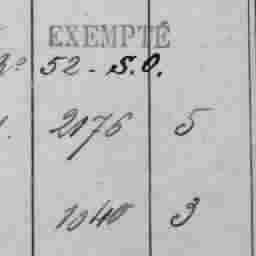 EXEMPTÉ
R° 52 - S.O.
2176 5
1040 3